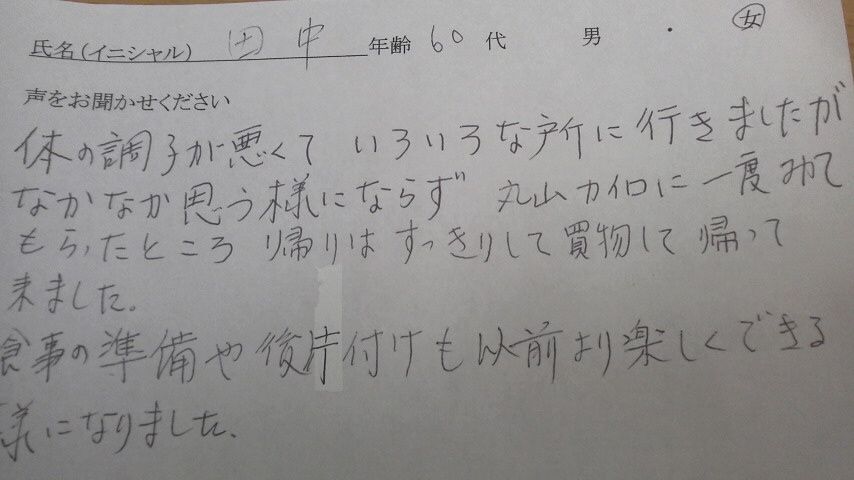 氏名(イニシャル) 田中 年齢 60代 男 ・ 女
声をお聞かせください
体の調子が悪くて いろいろな所に行きましたが
なかなか思う様にならず 丸山カイロに一度みて
もらったところ 帰りはすっきりして買物して帰って
来ました。
食事の準備や後片付けも以前より楽しくできる
様になりました。